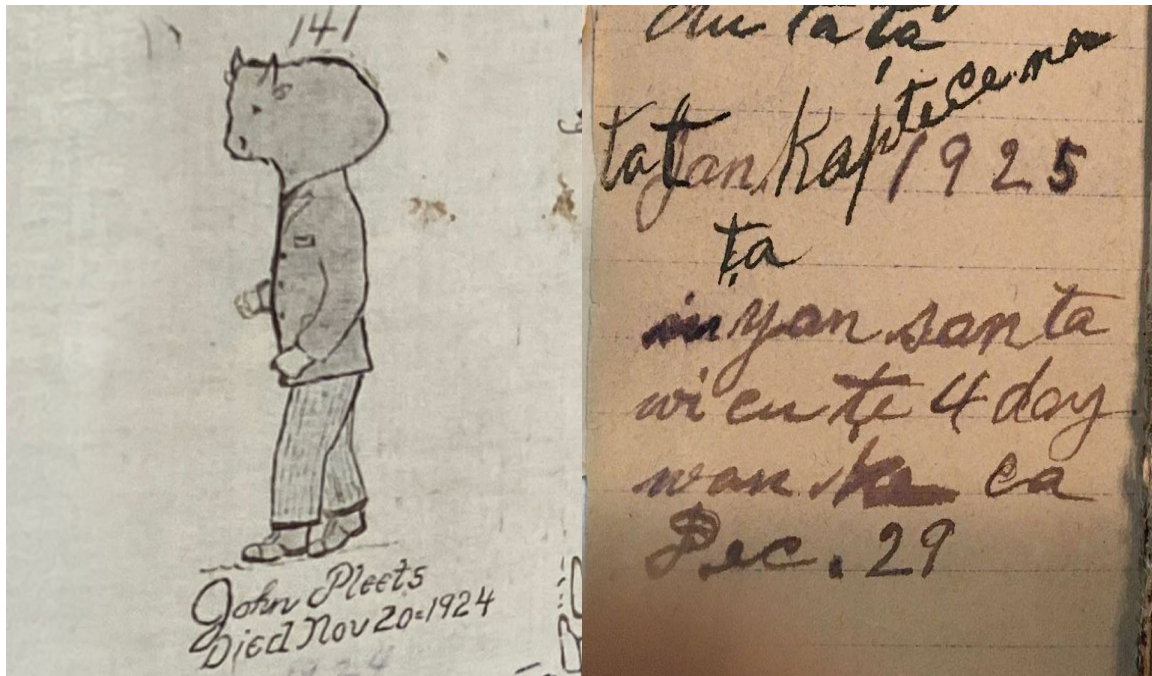 141
John Pleets
Died Nov 20=1924
tata
ptecena
tatanka 1925
ta
inyan san ta
wi cu te 4 day
wan ca
Dec. 29